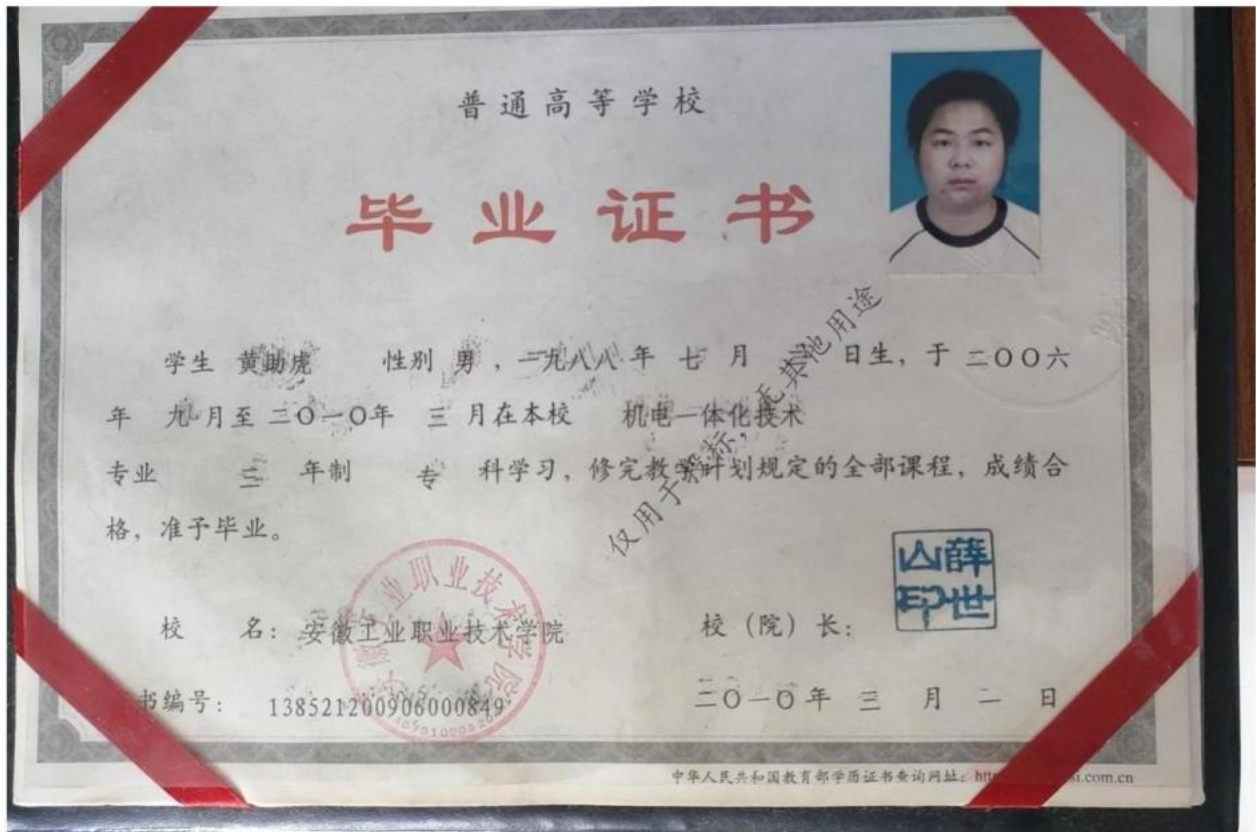 普通高等学校
毕业证书
学生 黄助虎 性别 男，一九八八年 七 月 日生，于 二〇〇六
年 九月至 二〇一〇年 三 月在本校 机电一体化技术
专业 三 年制 专 科学习，修完教学计划规定的全部课程，成绩合
格，准予毕业。
仅用于投标，无其他用途
校 名：安徽工业职业技术学院
安徽工业职业技术学院
校（院）长：
薛世
山印
书编号： 138521200906000849
二〇一〇年 三 月 二 日
中华人民共和国教育部学历证书查询网址：htt si.com.cn